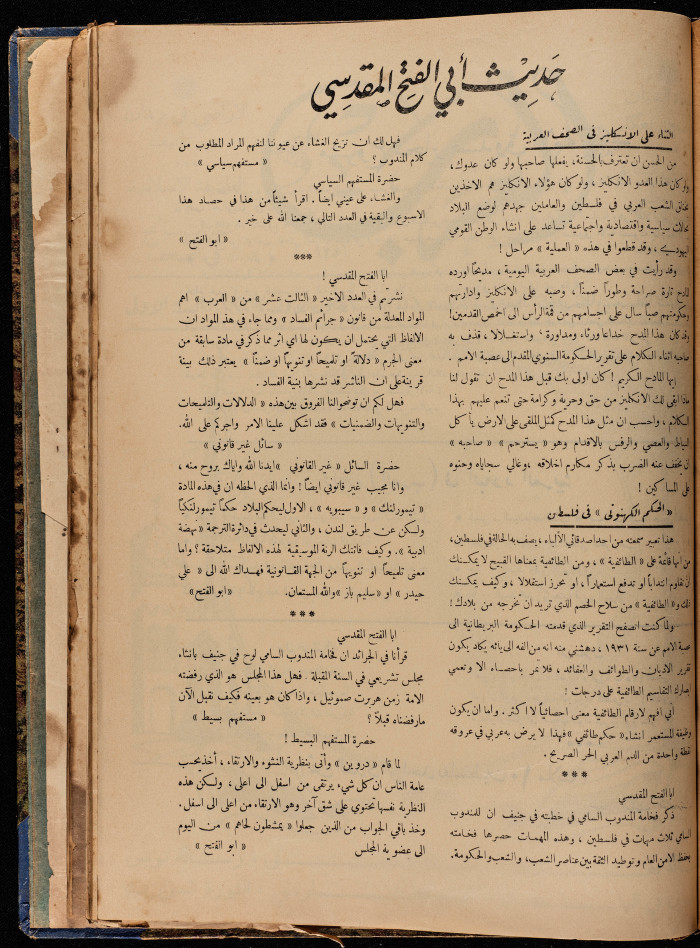 حديث أبي الفتح المقدسي
الثناء على الانكليز في الصحف العربية
من الحسن ان تعترف بالحسنة، يفعلها صاحبها ولو كان عدوك،
ولو كان هذا العدو الانكليز، ولو كان هؤلاء الانكليز هم الآخذين
بخناق الشعب العربي في فلسطين والعاملين جهدهم لوضع البلاد
بحالات سياسية واقتصادية واجتماعية تساعد على انشاء الوطن القومي
اليهودي، وقد قطعوا في هذه « العملية » مراحل !
وقد رأيت في بعض الصحف العربية اليومية، مديحاً اورده
المادح تارة صراحة وطوراً ضمناً، وصبه على الانكليز وادارتهم
وحكومتهم صباً سال على اجسامهم من قمة الرأس الى اخمص القدمين!
وقد كان هذا المدح خداعاً ورثاء ومداورة، واستغفلالا، قذف به
صاحبه اثناء الكلام على تقرير الحكومة السنوي المقدم الى عصبة الامم .
إيها المادح الكريم ! كان اولى بك قبل هذا المدح ان تقول لنا
ماذا ابقى لك الانكليز من حق وحرية وكرامة حتى تنعم عليهم بهذا
الكلام، واحسب ان مثل هذا المدح كمثل الملقى على الارض يأكل
السياط والعصي والرفس بالاقدام وهو « يسترحم » « صاحبه »
ان يخفف عنه الضرب بذكر مكارم اخلاقه، وعالي سجاياه وحنوه
على المساكين !
« الحكم الكهنوتي » في فلسطين
هذا تعبير سمعته من احد اصدقائي الألباء، يصف به الحالة في فلسطين،
من انها قائمة على « الطائفية »، ومن الطائفية بمعناها القبيح لا يمكنك
ان تقاوم انتداباً او تدفع استعماراً، او تحرز استقلالا، وكيف يمكنك
ذلك و « الطائفية » من سلاح الخصم الذي تريد ان تخرجه من بلادك !
ولما كنت اتصفح التقرير الذي قدمته الحكومة البريطانية الى
عصبة الامم عن سنة ١٩٣١، دهشني منه انه من الفه الى يائه يكاد يكون
تقرير الاديان والطوائف والعقائد، فلا تمر باحصاء الا وتعمي
بصارك التقاسيم الطائفية على درجات !
أني افهم لارقام الطائفية معنى احصائياً لا اكثر . واما ان يكون
وظيفة المستعمر انشاء « حكم طائفي » فهذا لا يرض به عربي في عروقه
نقطة واحدة من الدم العربي الحر الصريح .
***
ابا الفتح المقدسي
ذكر فخامة المندوب السامي في خطبته في جنيف ان للمندوب
السامي ثلاث مهمات في فلسطين، وهذه المهمات حصرها فخامته
بحفظ الامن العام و توطيد الثقة بين عناصر الشعب، والشعب والحكومة.
فهل لك ان تزيح الغشاء عن عيوننا لنفهم المراد المطلوب من
كلام المندوب ؟ « مستفهم سياسي »
حضرة المستفهم السياسي
والغشاء على عيني ايضاً . اقرأ شيئاً من هذا في حصاد هذا
الاسبوع والبقية في العدد التالي، جمعنا الله على خير .
« ابو الفتح »
***
ابا الفتح المقدسي !
نشرتم في العدد الاخير « الثالث عشر » من « العرب » اهم
المواد المعدلة من قانون « جرائم الفساد » ومما جاء في هذ المواد ان
الالفاظ التي يحتمل ان يكون لها اي اثر مما ذكر في مادة سابقة من
معنى الجرم « دلالة او تلميحاً او تنويهاً او ضمناً » يعتبر ذلك بينة
قرينة على ان الناشر قد نشرها بنية الفساد .
فهل لكم ان توضحوا لنا الفروق بين هذه « الدلالات والتلميحات
والتنويهات والضمنيات » فقد اشكل علينا الامر واجركم على الله.
« سائل غير قانوني »
حضرة السائل « غير القانوني » ايدنا الله واياك بروح منه ،
وانا مجيب غير قانوني ايضاً ! وانما الذي الحظه ان في هذه المادة
« تيمورلنك » و « سيبويه » ، الاول ليحكم البلاد حكماً تيمورلنكياً
ولكن عن طريق لندن، والثاني ليحدث في دائرة الترجمة « نهضة
ادبية ». وكيف فاتتك الرنة الموسيقية لهذه الالفاظ متلاحقة ؟ واما
معنى تلميحاً او تنويهاً من الجهة القانونية فهداك الله الى « علي
حيدر » او « سليم باز » والله المستعان. « ابو الفتح »
***
ابا الفتح المقدسي
قرأنا في الجرائد ان فخامة المندوب السامي لوح في جنيف بانشاء
مجلس تشريعي في السنة المقبلة . فهل هذا المجلس هو الذي رفضته
الامة زمن هربرت صموئيل، واذا كان هو بعينه فكيف نقبل الآن
ما رفضناه قبلاً ؟ « مستفهم بسيط »
حضرة المستفهم البسيط !
لما قام « دروين » وأتى بنظرية النشوء والارتقاء، أخذ يحسب
عامة الناس ان كل شيء يرتقي من اسفل الى اعلى، ولكن هذه
النظرية نفسها تحتوي على شق آخر وهو الارتقاء من اعلى الى اسفل.
وخذ باقي الجواب من الذين جعلوا « يمشطون لحاهم » من اليوم
الى عضوية المجلس « ابو الفتح »